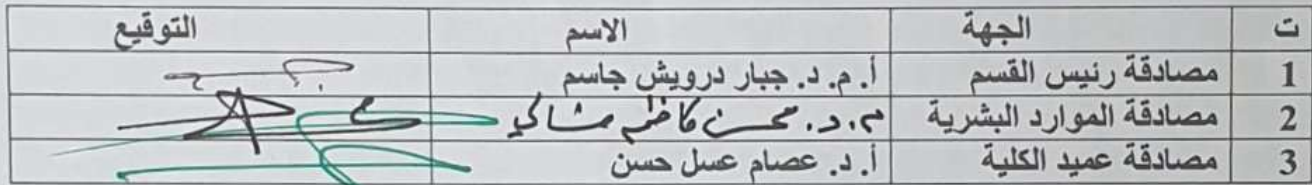 ت الجهة الاسم التوقيع
1 مصادقة رئيس القسم أ. م. د. جبار درويش جاسم
2 مصادقة الموارد البشرية م. د. محسن كاظم
3 مصادقة عميد الكلية أ. د. عصام عسل حسن